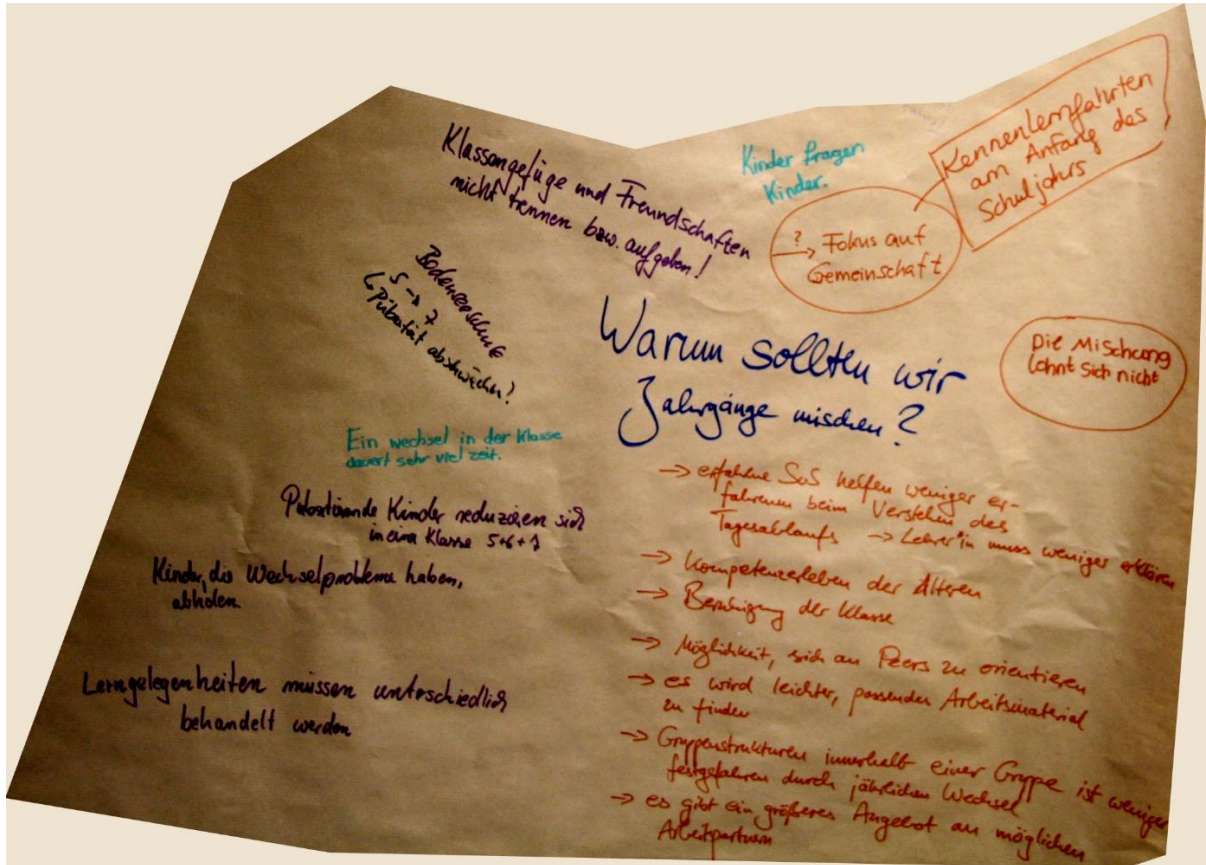 Klassengefüge und Freundschaften
nicht trennen bzw. aufgeben!
Kinder fragen
Kinder.
Kennenlernfahrten
am Anfang des
Schuljahrs
? → Fokus auf
Gemeinschaft
Bodenseeschule
5 → 7
↳ Pubatät abschwächen?
Warum sollten wir
Jahrgänge mischen?
Die Mischung
lohnt sich nicht
Ein wechsel in der Klasse
dauert sehr viel zeit.
Kinder reduzieren sich
in eina Klasse 5+6+7
Kinder, die Wechselprobleme haben,
abholen.
Lerngelegenheiten müssen unterschiedlich
behandelt werden
→ erfahrene SuS helfen weniger er-
fahrenen beim Verstehen des
Tagesablaufs → Lehrer*in muss weniger erklären
→ Kompetenzerleben der Älteren
→ Beruhigung der Klasse
→ Möglichkeit, sich an Peers zu orientieren
→ es wird leichter, passendes Arbeitsmaterial
zu finden
→ Gruppenstrukturen innerhalb einer Gruppe ist weniger
festgefahren durch jährlichen Wechsel
→ es gibt ein größeres Angebot an möglichen
Arbeitpartnern